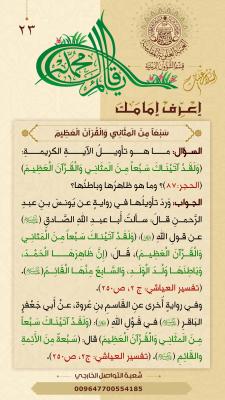 ٢٣
قائم آل محمد
اِعْرِفْ إمامَكَ
سَبْعاً مِنَ المَثَاني وَالْقُرْآنَ الْعَظِيمَ
السؤال: ما هو تأويل الآية الكريمة:
(وَلَقَدْ آتَيْنَاكَ سَبْعاً مِنَ المَثَانِي وَالْقُرْآنَ الْعَظِيمَ)
(الحجر: ٨٧)؟ وما هو ظاهرُها وباطنُها؟
الجواب: وردَ تأويلُها في روايةِ عن يُونسَ بن عبدِ
الرَّحمنِ قالَ: سألتُ أبا عبدِ اللهِ الصَّادقِ
عن قولِ اللهِ: (وَلَقَدْ آتَيْنَاكَ سَبْعاً مِنَ الْمَثَانِي
وَالْقُرْآنَ الْعَظِيمَ)، قَالَ: (إِنَّ ظَاهِرَهَا الْحَمْدُ،
وَبَاطِنَهَا وُلْدُ الْوَلَدِ، وَالسَّابِعُ مِنْهَا الْقَائِمُ)،
(تفسير العياشي: ج٢، ص٢٥٠).
وفي روايةٍ أُخرى عنِ القاسمِ بن عُروةَ، عنْ أبي جَعْفَرٍ
الباقرِ في قَوْلِ اللهِ: (وَلَقَدْ آتَيْنَاكَ سَبْعاً
مِنَ الْمَثَانِي وَالْقُرْآنَ الْعَظِيمَ) قال: (سَبْعَةٌ مِنَ الْأَئِمَّةِ
وَالقَائِمُ)، (تفسير العياشي: ج٢، ص٢٥٠).
شعبة التواصل الخارجي
009647700554185